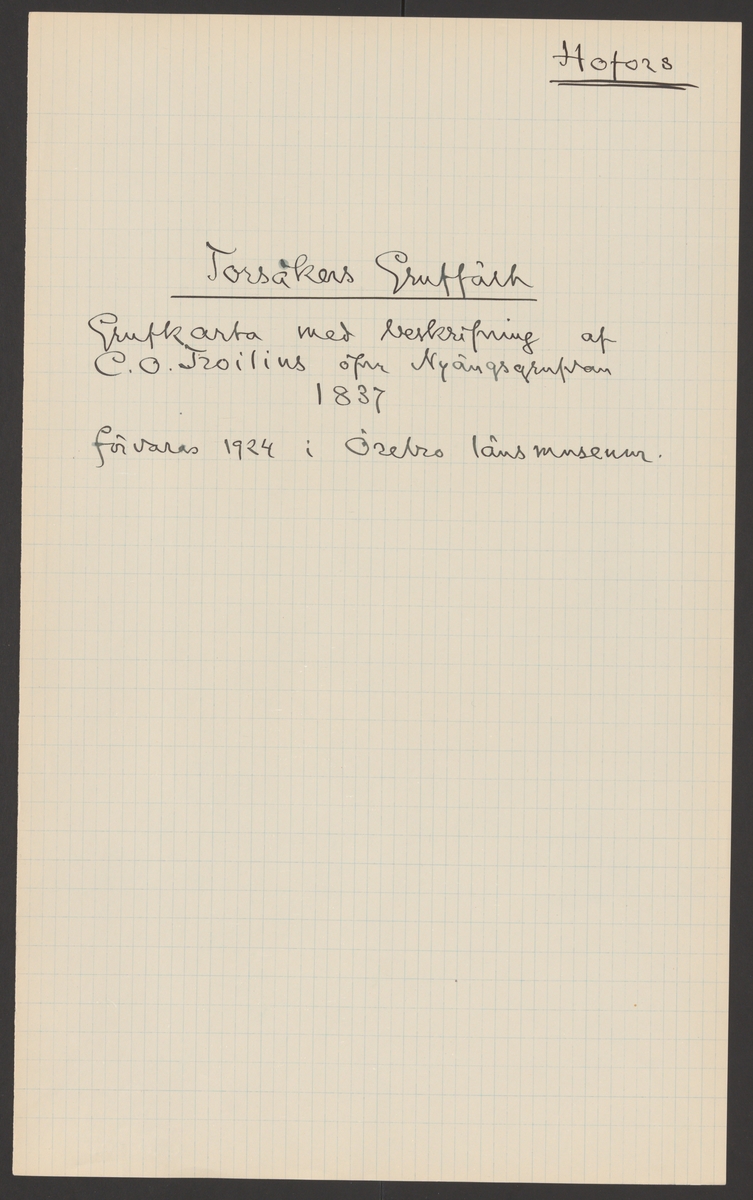 Hofors
Torsåkers Gruffält
Grufkarta med beskrifning af
C.O. Troilius öfver Nyängsgrufvan
1837
förvaras 1924 i Örebro länsmuseum.